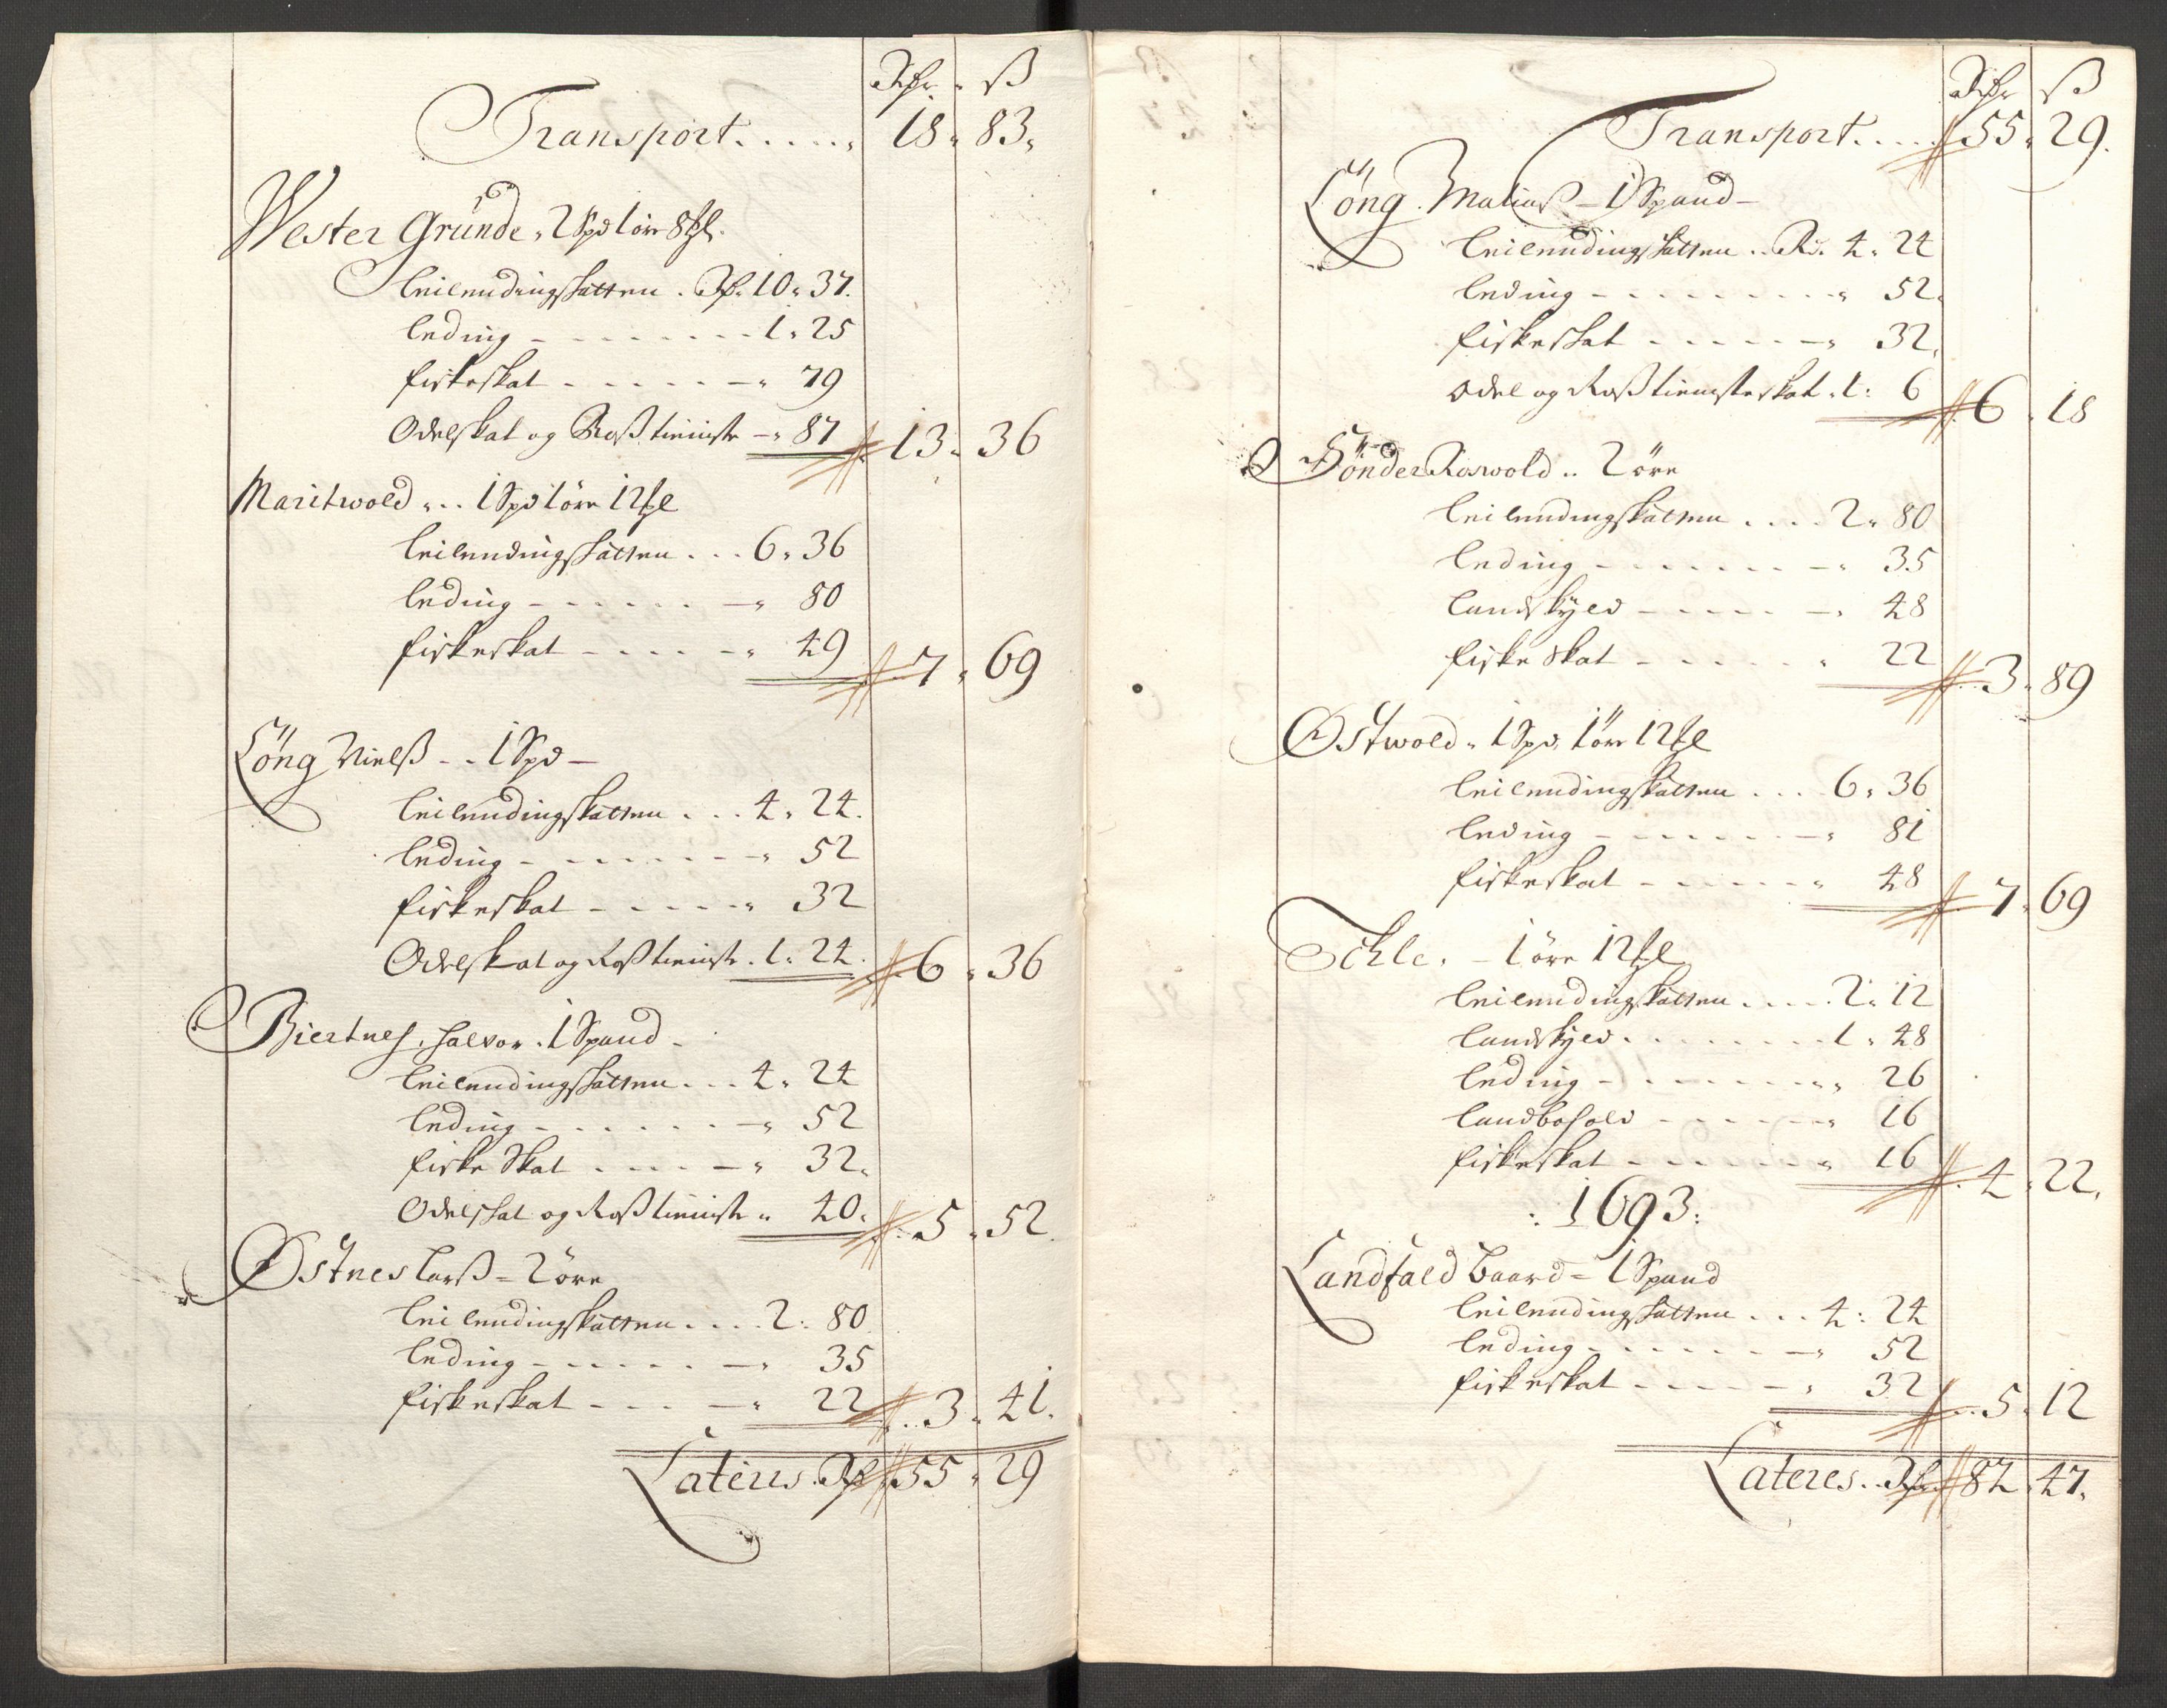 Rdr ß
Transport..... 18 " 83 "
Wester Grunde " 2 Spd 1 öre 8 ßl.
Leilendingsskatten . Rd. 10 " 37.
Leding - - - - - - 1 " 25
fiskeskat - - - - - " 79
Odelskat og Rosstienniste - " 87 13 " 36
Maritwold ". . 1 Spd 1 öre 12 ßl
Leilendingsskatten . . . 6 " 36
Leding - - - - - - " 80
fiskeskat - - - - - " 49 7 " 69
Löng Nielß - - 1 Spd -
Leilendingskatten . . . 4 " 24.
Leding - - - - - - - " 52
fiskeskat - - - - - " 32
Odelskat og Rosstienniste . 1 " 24. 6 " 36
Biertnes, Halvor . 1 Spand -
Leilendingsskatten . . . 4 " 24
Leding - - - - - - - " 52
fiske Skat - - - - - " 32 "
Odelskat og Rosstienniste " 40 " 5 " 52.
Östnes Larß = 2 öre
Leilendingskatten . . . . 2 : 80
Leding - - - - - - " 35
fiskeskat - - - - " 22 3 " 41.
Lateres . Rd 55 " 29
Rdr ß
Transport. . . . 55 " 29.
Löng . Matiaß - 1 Spand -
Leilendingsskatten . . Rd. 4 " 24
Leding - - - - - - - " 52 "
fiskeskat - - - - - - " 32 "
Odel og Rosstiennisteskat . 1 : 6 6 " 18
Sönder Roswold . . 2 öre
Leilendingskatten . . . . 2 " 80
Leding - - - - - - - " 35
Landskyld - - - - - " 48
fiske Skat - - - - - " 22 3 " 89
Östwold " 1 Spd, 1 öre 12 ßl
Leilendingskatten . . . 6 " 36
Leding - - - - - - - " 81
fiskeskat - - - - - " 48 7 " 69
Echle, - 1 öre 12 ßl
Leilendingskatten . . . . 2 " 12
Landskyld . . . . . . . 1 " 48
Leding - - - - - - - " 26
Landbohold - - - - - " 16
fiskeskat - - - - - - " 16 4 " 22 "
: 1693 :
Landfald Baard = 1 Spand
Leilendingsskatten . . . 4 : 24
Leding - - - - - - - " 52
fiskeskat - - - - - " 32 5 " 12
Lateres . . Rd 82 " 47 "